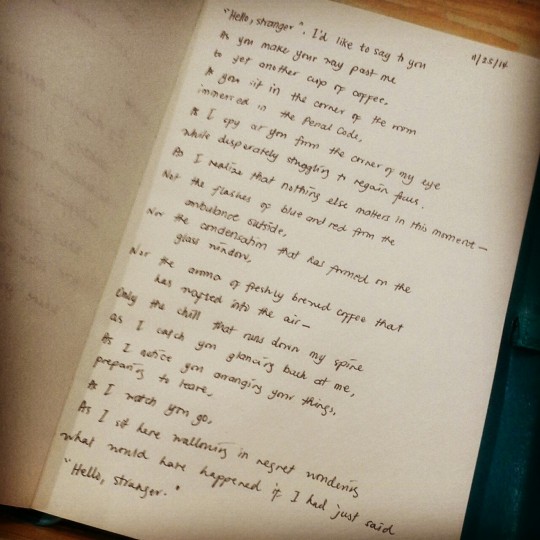 11/25/14
"Hello, stranger", I'd like to say to you
As you make your way past me
to get another cup of coffee,
As you sit in the corner of the room
immersed in the Penal Code,
As I spy at you from the corner of my eye
while desperately struggling to regain focus.
As I realize that nothing else matters in this moment—
Not the flashes of blue and red from the
ambulance outside,
Nor the condensation that has formed on the
glass window,
Nor the aroma of freshly brewed coffee that
has wafted into the air—
Only the chill that runs down my spine
as I catch you glancing back at me,
As I notice you arranging your things,
preparing to leave,
As I watch you go,
As I sit here wallowing in regret wondering
what would have happened if I had just said
"Hello, stranger."